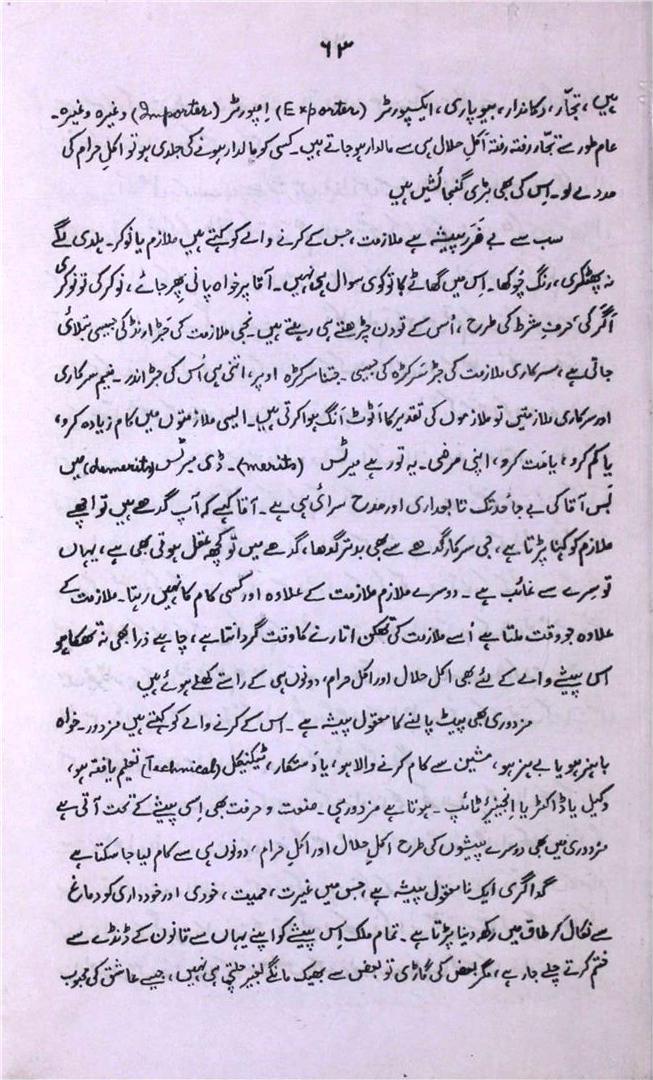 ۶۳
ہیں، تجّار، دکاندار، بیوپاری، ایکسپورٹر (Exporter) اِمپورٹر (Importer) وغیرہ وغیرہ۔
عام طور سے تجّار رفتہ رفتہ اَکلِ حلال ہی سے مالدار ہو جاتے ہیں۔ کسی کو مالدار ہونے کی جلدی ہو تو اکلِ حرام کی
مدد لے لو۔ اِس کی بھی بڑی گنجائشیں ہیں
سب سے بے ضَرر پیشہ ہے ملازمت، جس کے کرنے والے کو کہتے ہیں ملازم یا نوکر۔ ہلدی لگے
نہ پھٹکری، رنگ چُوکھا۔ اِس میں گھاٹے کا تو کوئی سوال ہی نہیں۔ آقا پر خواہ پانی پھر جائے، نوکر کی تو نوکری
اگر کی حرفِ شرط کی طرح، اُس کے تو دن چڑھتے ہی رہتے ہیں۔ نجی ملازمت کی جَڑ ارنڈ کی جیسی بتلائی
جاتی ہے، سرکاری ملازمت کی جڑ سَرکڑہ کی جیسی۔ جتنا سرکڑہ اوپر، اتنی ہی اُس کی جڑ اندر۔ نیم سرکاری
اور سرکاری ملازمتیں تو ملازموں کی تقدیر کا اَٹوٹ اَنگ ہوا کرتی ہیں۔ ایسی ملازمتوں میں کام زیادہ کرو،
یا کم کرو، یا مَت کرو، اپنی مرضی۔ یہ تو رہے میرٹس (merits)۔ ڈی میرٹس (demerits) میں
بَس آقا کی بے جا حَدتک تابعداری اور مدح سرائی ہی ہے۔ آقا کہے کہ آپ گدھے ہیں تو اچھے
ملازم کو کہنا پڑتا ہے، جی سرکار گدھے سے بھی بدتر گدھا، گدھے میں تو کچھ عقل ہوتی بھی ہے، یہاں
تو سِرے سے غائب ہے۔ دوسرے ملازم ملازمت کے علاوہ اور کسی کام کا نہیں رہتا۔ ملازمت کے
علاوہ جو وقت ملتا ہے اُسے ملازمت کی تھکن اتارنے کا وقت گردانتا ہے، چاہے ذرا بھی نہ تھکا ہو
اس پیشے والے کے لئے بھی اکلِ حلال اور اکلِ حرام، دونوں ہی کے راستے کھلے ہوئے ہیں
مزدوری بھی پیٹ پالنے کا معقول پیشہ ہے۔ اس کے کرنے والے کو کہتے ہیں مزدور۔ خواہ
باہنر ہو یا بے ہنر ہو، مشین سے کام کرنے والا ہو، یا دَستکار، ٹیکنیکل (Technical) تعلیم یافتہ ہو،
وکیل یا ڈاکٹر یا اِنجینیٔر ٹائپ۔ ہوتا ہے مزدور ہی۔ صنعت و حرفت بھی اِسی پیشے کے تحت آتی ہے
مزدوری میں بھی دوسرے پیشوں کی طرح اکلِ حلال اور اکلِ حرام، دونوں ہی سے کام لیا جا سکتا ہے
گداگری ایک نامعقول پیشہ ہے، جس میں غیرت، حمیت، خودی اور خودداری کو دماغ
سے نکال کر طاق میں رکھ دینا پڑتا ہے۔ تمام ملک اِس پیشے کو اپنے یہاں سے قانون کے ڈنڈے سے
ختم کرتے چلے جا رہے، مگر بعض کی گاڑی تو بعض سے بھیک مانگے بغیر چلتی ہی نہیں، جیسے عاشق کی محبوب